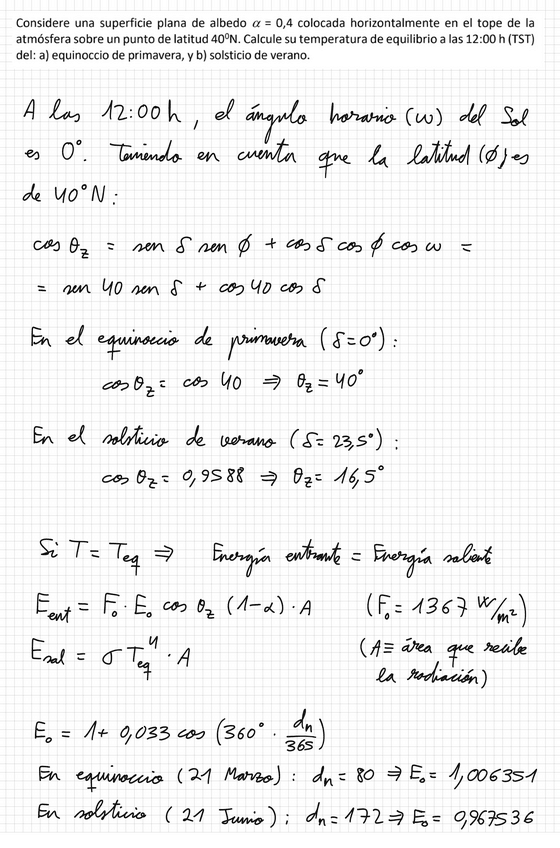 Considere una superficie plana de albedo α = 0,4 colocada horizontalmente en el tope de la
atmósfera sobre un punto de latitud 40ºN. Calcule su temperatura de equilibrio a las 12:00 h (TST)
del: a) equinoccio de primavera, y b) solsticio de verano.
A las 12:00h, el ángulo horario (ω) del Sol
es 0°. Teniendo en cuenta que la latitud (ϕ) es
de 40°N:
cos θz = sen δ sen ϕ + cos δ cos ϕ cos ω =
= sen 40 sen δ + cos 40 cos δ
En el equinoccio de primavera (δ=0°):
cos θz = cos 40 ⇒ θz = 40°
En el solsticio de verano (δ= 23,5°):
cos θz = 0,9588 ⇒ θz = 16,5°
Si T = Teq ⇒ Energía entrante = Energía saliente
Eent = F₀·E₀ cos θz (1-α)·A (F₀ = 1367 W/m²)
Esal = σ Teq⁴·A (A ≡ área que recibe
la radiación)
E₀ = 1 + 0,033 cos (360° · dn/365)
En equinoccio (21 Marzo): dn = 80 ⇒ E₀ = 1,006351
En solsticio (21 Junio): dn = 172 ⇒ E₀ = 0,967536